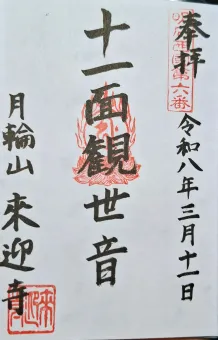 奉拝
第六番
令和八年三月十一日
十一面観世音
月輪山 来迎寺